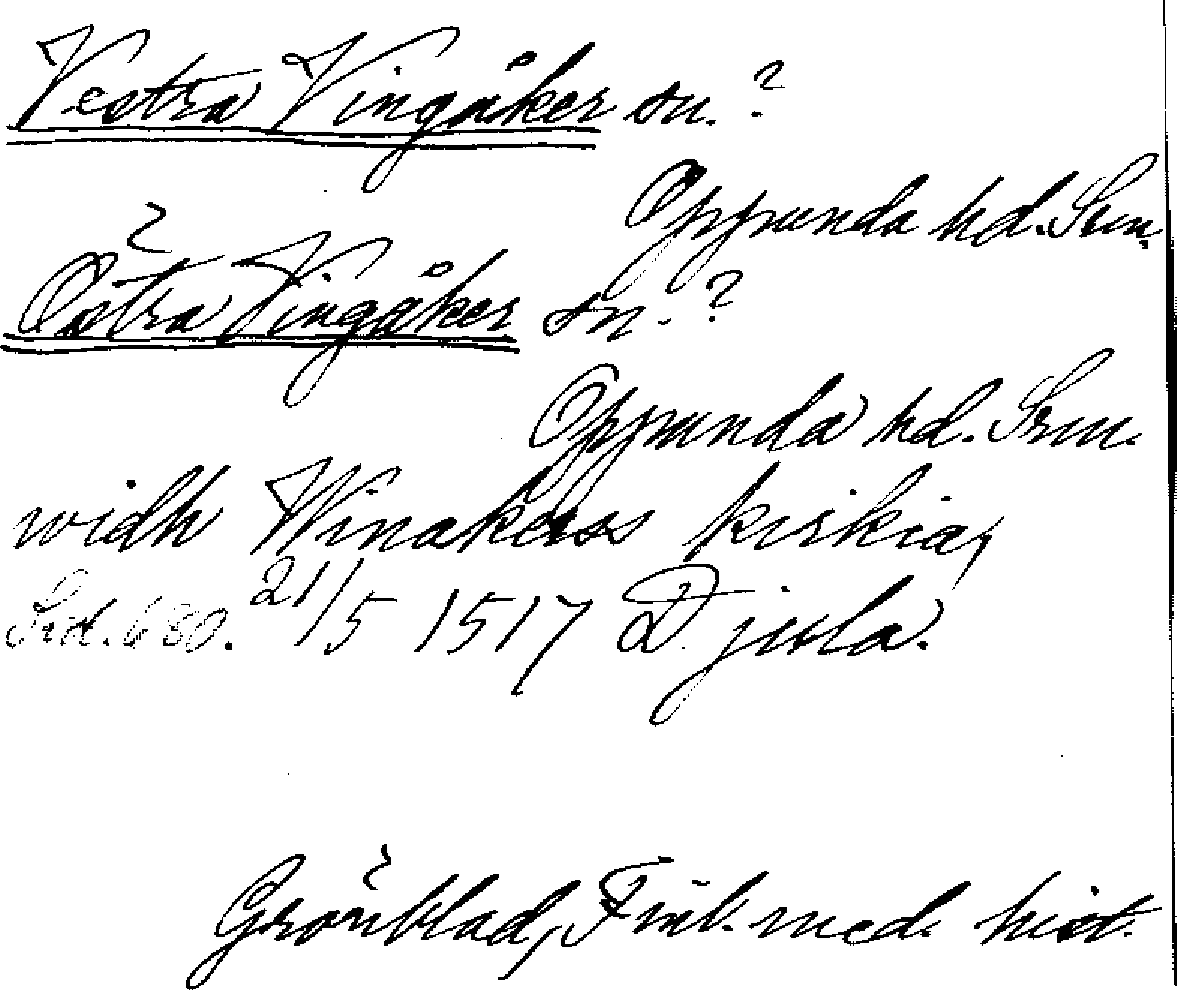 Vestra Vingåker sn.?
Oppunda hd. Srm.
Östra Vingåker sn.?
Oppunda hd. Srm.
widh Winakerss kirkia,
Sid. 680. 21/5 1517 Djula.
Grönblad, Finl. med. hist.